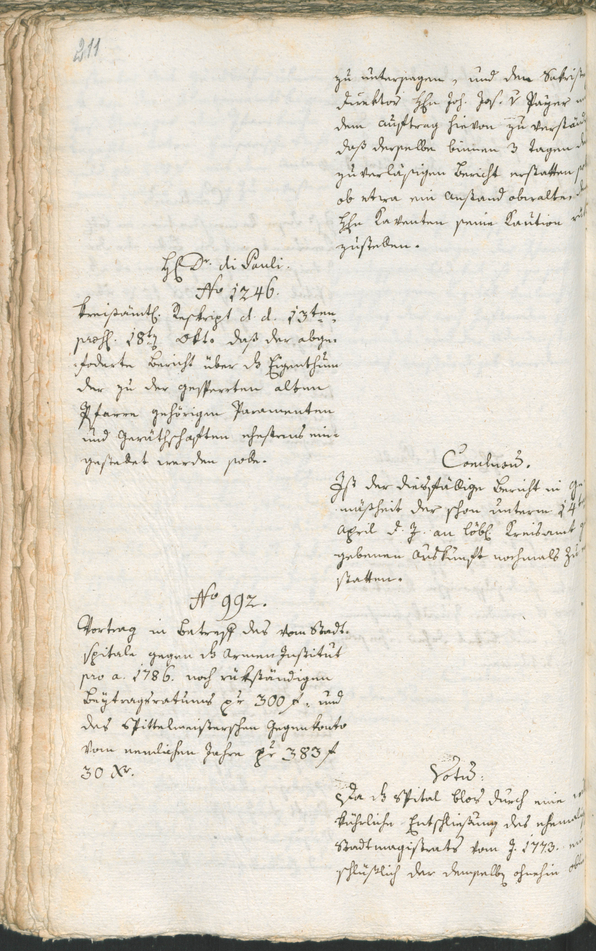 211
zu untersagen, und dem Sakristei
Direktor Hhn Joh. Jos. v Payer
dem Auftrag hievon zu verständ
daß derselbe binnen 3 Tagen
zuverläsigen Bericht erstatten
ob etwa ein Anstand obwalte,
Hhn Kaventen seine Kaution
zustellen.
H. Dr. di Pauli.
No 1246.
Kreisämtl. Reskript d. d. 13ten
18t Okt. daß der abge¬
foderte Bericht über ds Eigenthum
der zu der gesperrten alten
Pfarre gehörigen Paramenten
und Geräthschaften ehestens ein¬
gestattet werden solle.
Conclusum.
Ist der diesfällige Bericht in Ge
mäßheit der schon unterm 14t
April d. J. an löbl. Kreisamt
gebenen Auskunft nochmals zu
statten.
No 992.
Vortrag in Betreff des vom Stadt¬
spitale gegen ds Armen Institut
pro a. 1786. noch rükständigen
Beytragsratums pr 300 f. und
des Spittelmeisterschen Gegenkonto
vom nemlichen Jahre pr 383 f
30 Xr.
Votum:
Da ds Spital blos durch eine
kührliche Entschließung des ehemalig
Stadtmagistrats vom J. 1773.
schlüßlich der demselben ohnehin